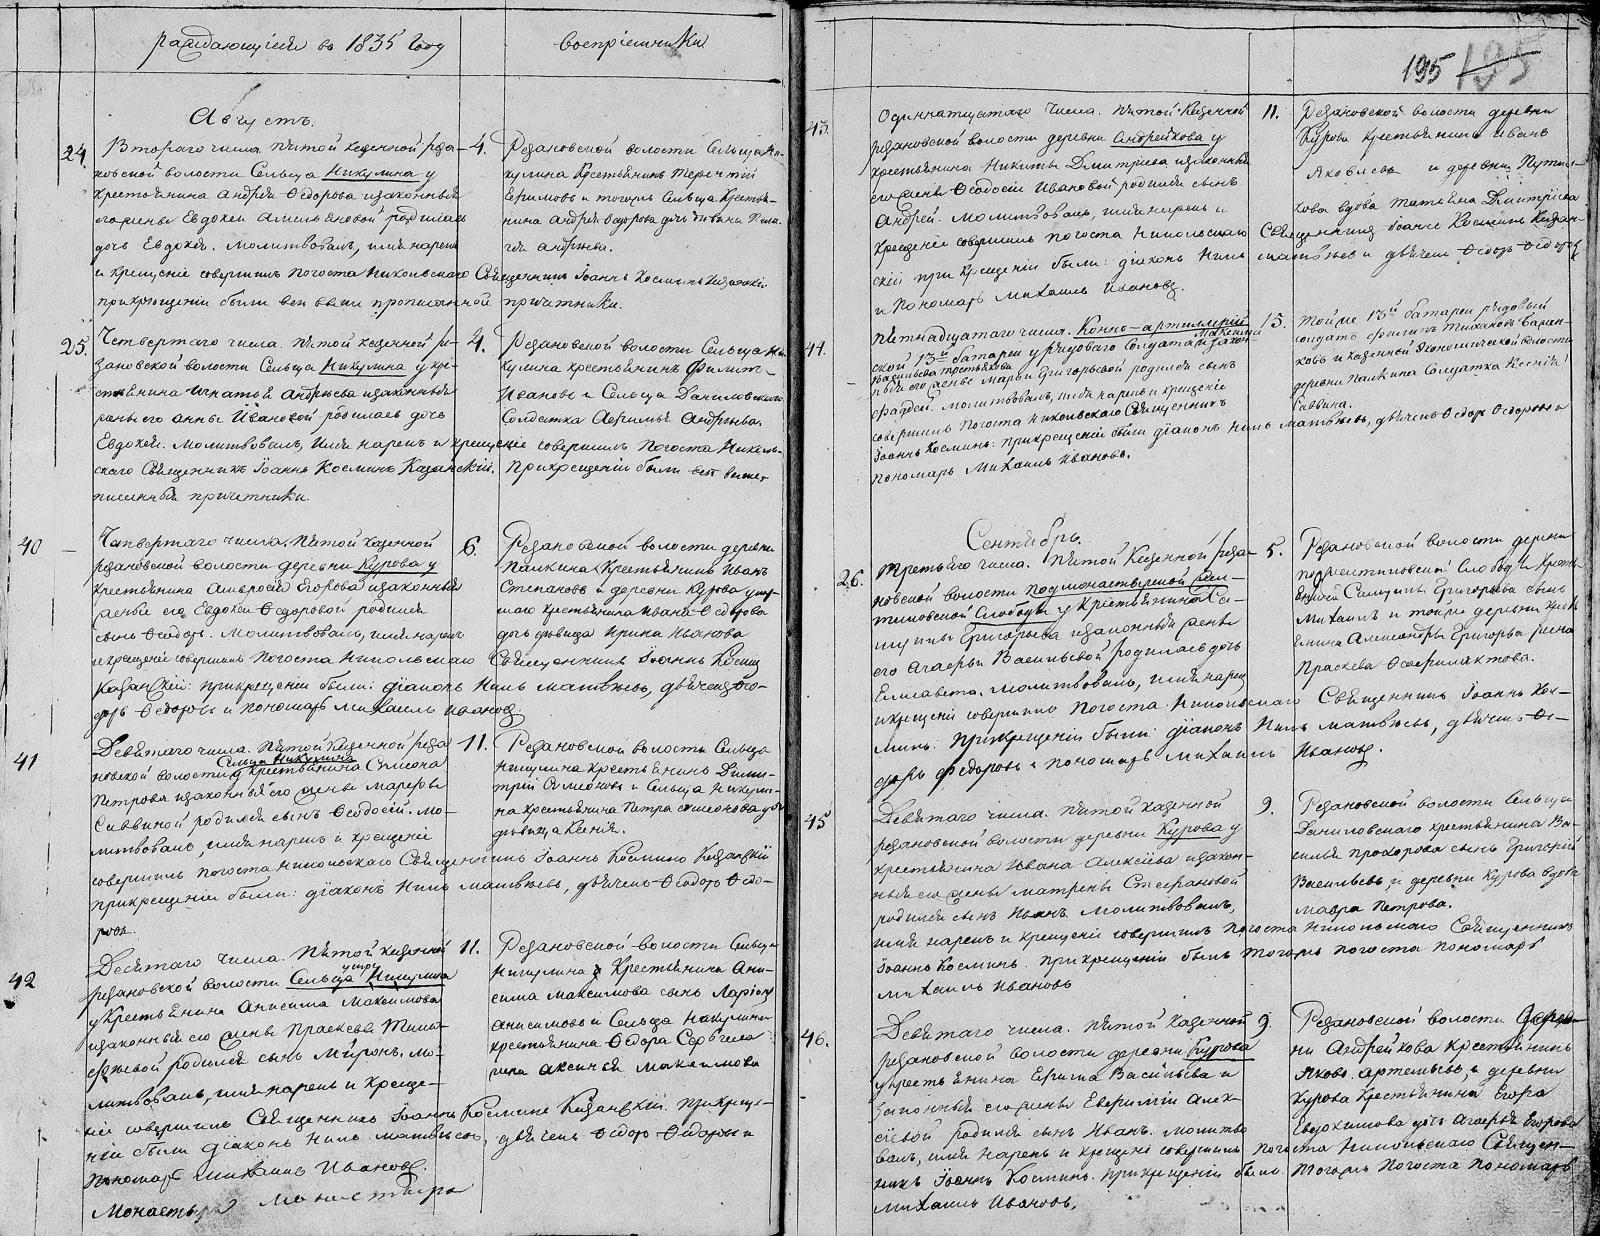 раждающіися въ 1835 Году
воспріемники
Августъ.
24
Втораго числа. Пятой казенной Реза-
новской волости Сельца Никулина у
крестьянина Андрея Федорова изаконныя
его жены Евдокеи Амельяновой родилась
дочь Евдокея. Молитвовалъ, имя нарекъ
и крещеніе совершилъ погоста Никольскаго Священникъ Іоаннъ Косминъ Казанскій.
прикрещеніи были все выше прописанной причетники.
4.
Резановской волости Сельца Ни-
кулина Крестьянинъ Терентій
Ефимовъ и тогожъ Сельца Крестья-
нина Андрея Федорова дочь девица Пела-
гея Андреева.
25.
Четвертаго числа. Пятой казенной Ре-
зановской волости Сельца Никулина у кре-
стьянина Игнатія Андреева изаконныя
жены его Анны Ивановой родилась дочь
Евдокея. Молитвовалъ, имя нарекъ и крещеніе совершилъ погоста Николь-
скаго Священникъ Іоаннъ Косминъ Казанскій. Прикрещеніи были все выше
писанныя причетники.
4.
Резановской волости Сельца Ни-
кулина крестьянинъ Филипъ
Ивановъ и Сельца Даниловскаго
Солдатка Афимья Андреева.
40
Четвертаго числа. Пятой казенной
Резановской волости деревни Курова у
крестьянина Амвросія Егорова изаконныя
жены его Евдокеи Федоровой родился
сынъ Федоръ. Молитвовалъ, имя нарекъ
и крещеніе совершилъ погоста Никольскаго Священникъ Іоаннъ Косминъ
Казанскій: прикрещеніи были: діаконъ Нилъ Матвеевъ, дьячекъ Фео-
доръ Федоровъ и пономарь Михаилъ Ивановъ.
6.
Резановской волости деревни
Палкина Крестьянинъ Иванъ
Степановъ и деревни Курова
крестьянина Ивана Федорова
дочь девица Ирина Иванова
41
Девятаго числа. Пятой Казенной Реза
новской волости Сельца Никулина у крестьянина Симеона
Петрова изаконныя его жены Марфы
Саввиной родился сынъ Феодосій. Мо-
литвовалъ, имя нарекъ и крещеніе
совершилъ погоста Никольскаго Священникъ Іоаннъ Косминъ Казанскій
прикрещеніи были: діаконъ Нилъ Матвеевъ, дьячекъ Федоръ Федо-
ровъ.
11.
Резановской волости Сельца
Никулина крестьянинъ Дими-
трій Симеоновъ и Сельца Никули-
на крестьянина Петра Симеонова дочь
девица Ксенія.
42
Десятаго числа. Пятой казенной
Резановской волости Сельца Никулина
у Крестьянина Анисима Максимова
изаконныя его жены Прасковьи Тимо-
феевой родился сынъ Миронъ. Мо-
литвовалъ, имя нарекъ и креще-
ніе совершилъ Священникъ Іоаннъ Косминъ Казанскій. Прикреще-
ніи были діаконъ Нилъ Матвеевъ, дьячекъ Федоръ Федоровъ и
пономарь Михаилъ Ивановъ.
11.
Резановской волости Сельца
Никулина Крестьянина Ани-
сима Максимова сынъ Ларіонъ
Анисимовъ и Сельца Никулина
крестьянина Федора Сергеева
жена Аксинья Максимова
Монастыря Монастыря
195 195
43.
Одиннатцатаго Числа. Пятой Казенной
Резановской волости деревни Андрейкова у
крестьянина Никиты Дмитріева изаконныя
его жены Феодосіи Ивановой родился сынъ
Андрей. Молитвовалъ, имя нарекъ и
Крещеніе совершилъ погоста Никольскаго Священникъ Іоаннъ Косминъ Казан-
скій при крещеніи были: діаконъ Нилъ Матвеевъ и дьячекъ Федоръ Федоровъ
и Пономарь Михаилъ Ивановъ.
11.
Резановской волости деревни
Курова Крестьянинъ Иванъ
Яковлевъ и деревни
кова вдова Татьяна Дмитріева
44.
Пятнадцатаго числа. Конно-артиллерій
ской 13й батареи у рядоваго Солдата
Васильева Третьякова
его жены Марьи Григорьевой родился сынъ
Фаддей. Молитвовалъ, имя нарекъ и крещеніе
совершилъ погоста Никольскаго Священникъ
Іоаннъ Косминъ. прикрещеніи были діаконъ Нилъ Матвеевъ, дьячекъ Федоръ Федоровъ и
пономарь Михаилъ Ивановъ.
15.
Тойже 13й батареи рядовый
солдатъ Филипъ Тихановъ
ковъ и казенной Экономической волости
деревни Палкина Солдатка Ксенія
Саввина.
Сентябрь.
26.
Третьяго числа. Пятой Казенной Реза-
новской волости Подмонастырской
Слободы у крестьянина
Григорьева изаконныя жены
его Агафьи Васильевой родилась дочь
Елисавета. Молитвовалъ, имя нарекъ
и крещеніе совершилъ Погоста Никольскаго Священникъ Іоаннъ Кос-
минъ. Прикрещеніи были: діаконъ Нилъ Матвеевъ, дьячекъ Фе-
доръ Федоровъ и пономарь Михаилъ Ивановъ.
5.
Резановской волости деревни
Слободы
Григорьева сынъ
Михаилъ и тойже деревни
Александра Григорьева жена
Прасковья Феофилактова.
45
Девятаго числа. Пятой казенной
Резановской волости деревни Курова у
крестьянина Ивана Алексіева изакон-
ныя его жены Матрены Стефановой
родился сынъ Иванъ. Молитвовалъ,
имя нарекъ и крещеніе совершилъ погоста Никольскаго Священникъ
Іоаннъ Косминъ. прикрещеніи былъ тогожъ погоста пономарь
Михаилъ Ивановъ
9.
Резановской волости Сельца
Даниловскаго крестьянина Ва-
силья Прохорова сынъ Григорій
Васильевъ, и деревни Курова вдова
Мавра Петрова.
46.
Девятаго числа. Пятой Казенной
Резановской волости деревни Курова
у крестьянина Ефима Васильева и
законныя его жены Евфиміи Алек-
сіевой родился сынъ Иванъ. Молитво
валъ, имя нарекъ и крещеніе совершилъ погоста Никольскаго Священ-
никъ Іоаннъ Косминъ. прикрещеніи былъ тогожъ погоста пономарь
Михаилъ Ивановъ.
9.
Резановской волости Дерев-
ни Андрейкова Крестьянинъ
Яковъ Артемьевъ, и деревни
Курова Крестьянина Егора
Евдокимова дочь Агафья Егорова